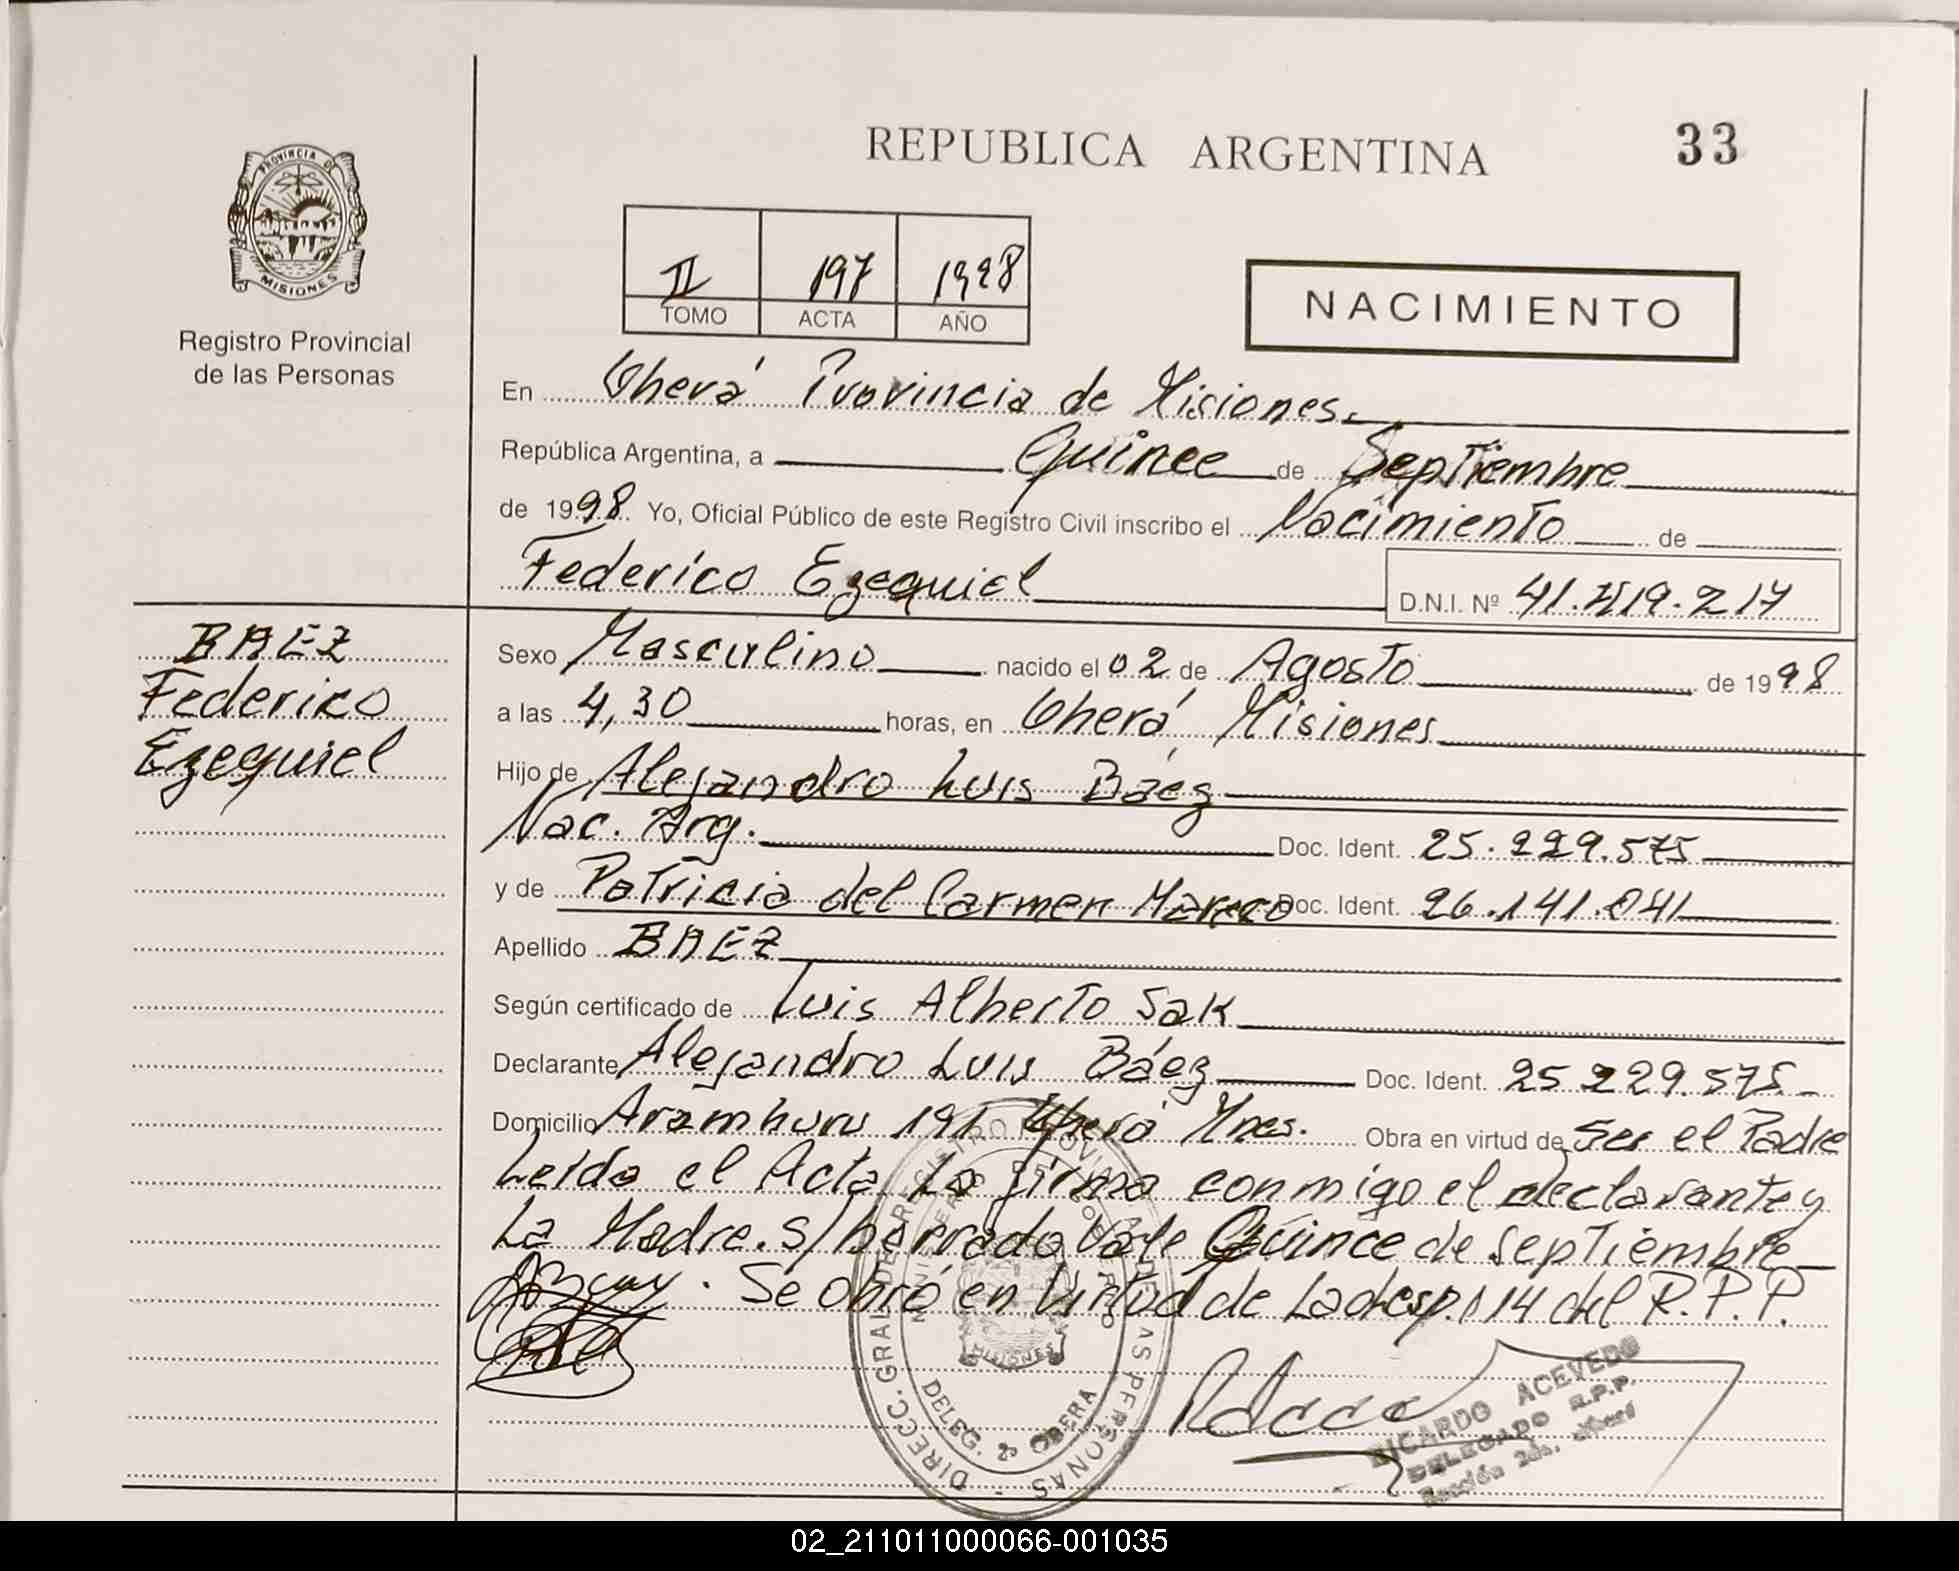 REPUBLICA ARGENTINA
33
PROVINCIA DE
MISIONES
Registro Provincial
de las Personas
II 197 1998
TOMO ACTA AÑO
NACIMIENTO
En Oberá Provincia de Misiones.
República Argentina, a Quince de Septiembre
de 1998 Yo, Oficial Público de este Registro Civil inscribo el Nacimiento de
Federico Ezequiel
D.N.I. Nº
BAEZ
Federico
Ezequiel
Sexo Masculino nacido el 02 de Agosto de 1998
a las 4,30 horas, en Oberá Misiones
Hijo de Alejandro Luis Báez
Nac. Arg. Doc. Ident. 25.229.575
y de Patricia del Carmen Mareco Doc. Ident. 26.141.041
Apellido BAEZ
Según certificado de Luis Alberto Sak
Declarante Alejandro Luis Báez Doc. Ident. 25.229.575
Domicilio Aramburu 191 Oberá Mnes. Obra en virtud de Ser el Padre
Leída el Acta La firma conmigo el declarante y
La Madre. S/ borrado Vale Quince de Septiembre
Se obró en Virtud de La desp. 114 del R.P.P.
DIRECC. GRAL. DE REGISTRO PROVINCIAL DE LAS PERSONAS
MINISTERIO DE GOBIERNO
MISIONES
DELEG. 2 OBERA
RICARDO ACEVEDO
DELEGADO R.P.P.
Sección 2da. Oberá
02_211011000066-001035